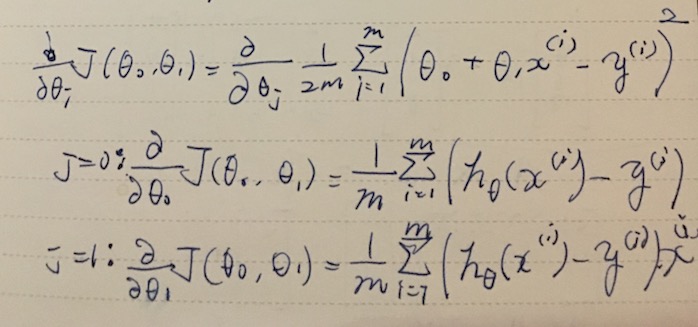 ∂/∂θj J(θ₀,θ₁) = ∂/∂θj 1/2m Σᵢ₌₁ᵐ (θ₀ + θ₁x⁽ⁱ⁾ − y⁽ⁱ⁾)²
j=0: ∂/∂θ₀ J(θ₀, θ₁) = 1/m Σᵢ₌₁ᵐ (hθ(x⁽ⁱ⁾) − y⁽ⁱ⁾)
j=1: ∂/∂θ₁ J(θ₀, θ₁) = 1/m Σᵢ₌₁ᵐ (hθ(x⁽ⁱ⁾) − y⁽ⁱ⁾)·x⁽ⁱ⁾